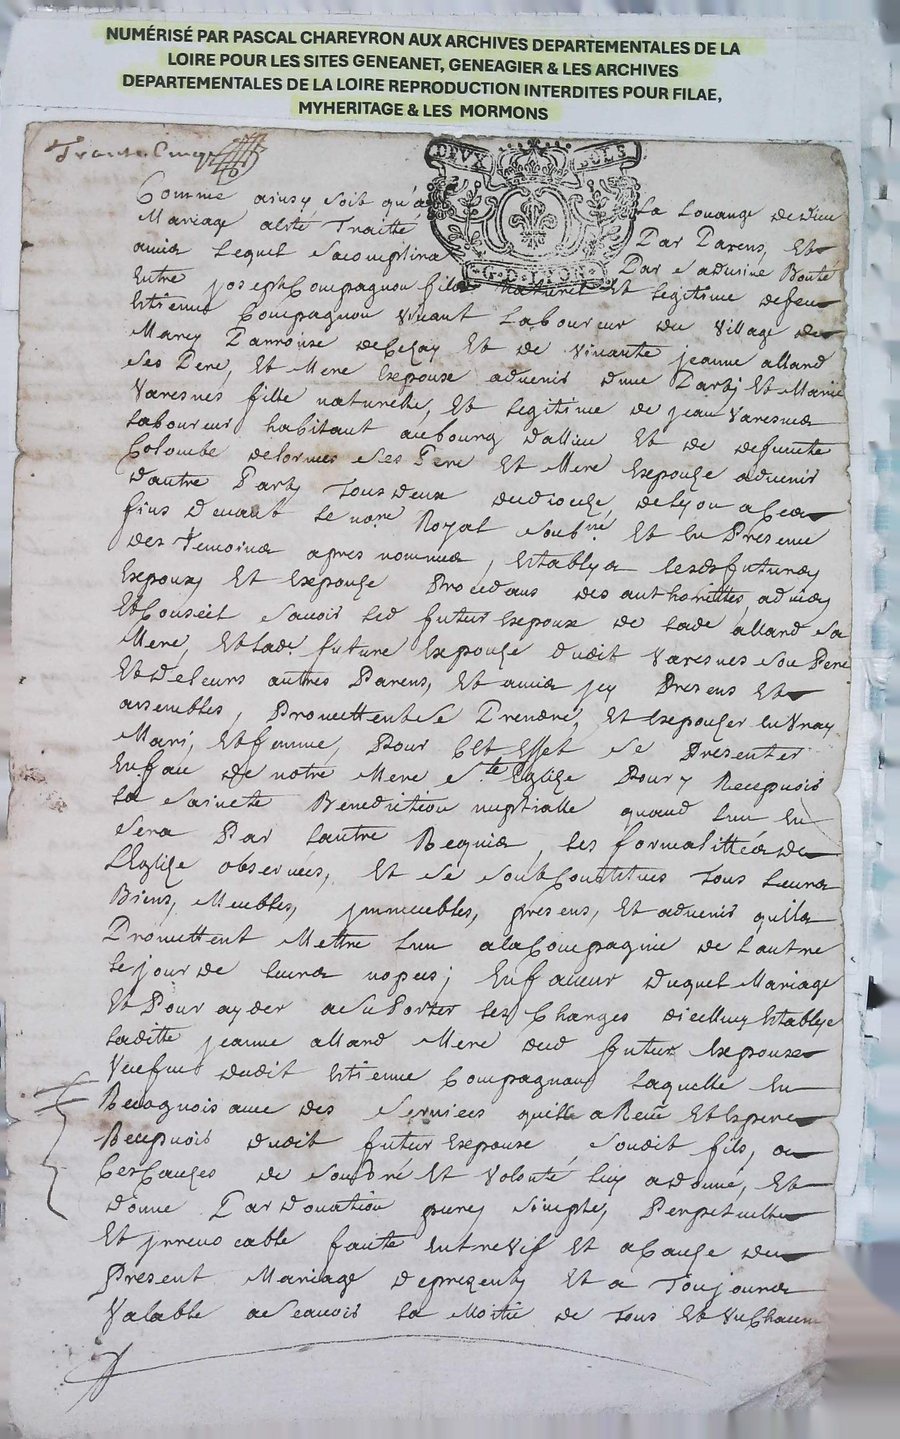 NUMÉRISÉ PAR PASCAL CHAREYRON AUX ARCHIVES DEPARTEMENTALES DE LA
LOIRE POUR LES SITES GENEANET, GENEAGIER & LES ARCHIVES
DEPARTEMENTALES DE LA LOIRE REPRODUCTION INTERDITES POUR FILAE,
MYHERITAGE & LES MORMONS
Trante Cinq
DEVX SOLS
G·D·LYON
Comme ainsy soit qu'a la Louange de dieu
Mariage aesté Traitté Par Parens, Et
amis Lequel Sacomplira Par sa divine Bonté
Entre joseph Compagnon fils naturel Et legitime defeu
Estienne Compagnon vivant Laboureur du village de
Marcy Parroisse de Et de vivante jeanne allard
ses Pere, Et Mere Expoux advenir dune Party Et Marie
Varesnes fille naturelle, Et legitime de jean Varesnes
laboureur habitant au bourg dallieu Et de deffunte
Colombe delormes ses Pere Et Mere Expouse advenir
dautre Party Tous deux du diocese de Lyon a Ces
fins devant le nore Royal soubné Et En Presence
des Temoins apres nommés, Establys lesds futurs
Expoux Et Expouse Procedans des authorittés, advis
Et Conseil savoir led futur Expoux de lade allard sa
Mere, Et lade future Expouse dudit Varesnes son Pere
Et de leurs autres Parens, Et amis jcy Presens Et
assembles, Promettent se Prendre, Et Expouser En vray
Mary, Et femme, Pour Cet Effet se Presenter
En face de notre Mere Ste Eglise Pour y Recepvoir
la Sainete Benediction nuptialle quand lun En
sera Par lautre Requis, les formalittés de
LEglise observées, Et se sont Constitues Tous leurs
Biens, Meubles, jmmeubles, presens, Et advenir quils
Promettent Mettre lun a la Compagnie de lautre
le jour de leurs nopces; En faveur duquel Mariage
Et Pour ayder a suporter les Charges dicelluy Establye
laditte jeanne allard Mere dud futur Expoux
Veufve dudit Estienne Compagnon Laquelle En
Recognoissance des services quelle a Receu Et Espere
Recepvoir dudit futur Expoux, soudit fils, a
Ces Causes de son Gré Et Volonté luy a donné, Et
donne Par donation pure, simple, Perpetuelle
Et jrrevocable faite Entre vif Et a Cause du
Present Mariage depresent, Et a Toujours
Valable a Scavoir la Moitié de Tous Et Un Chacun